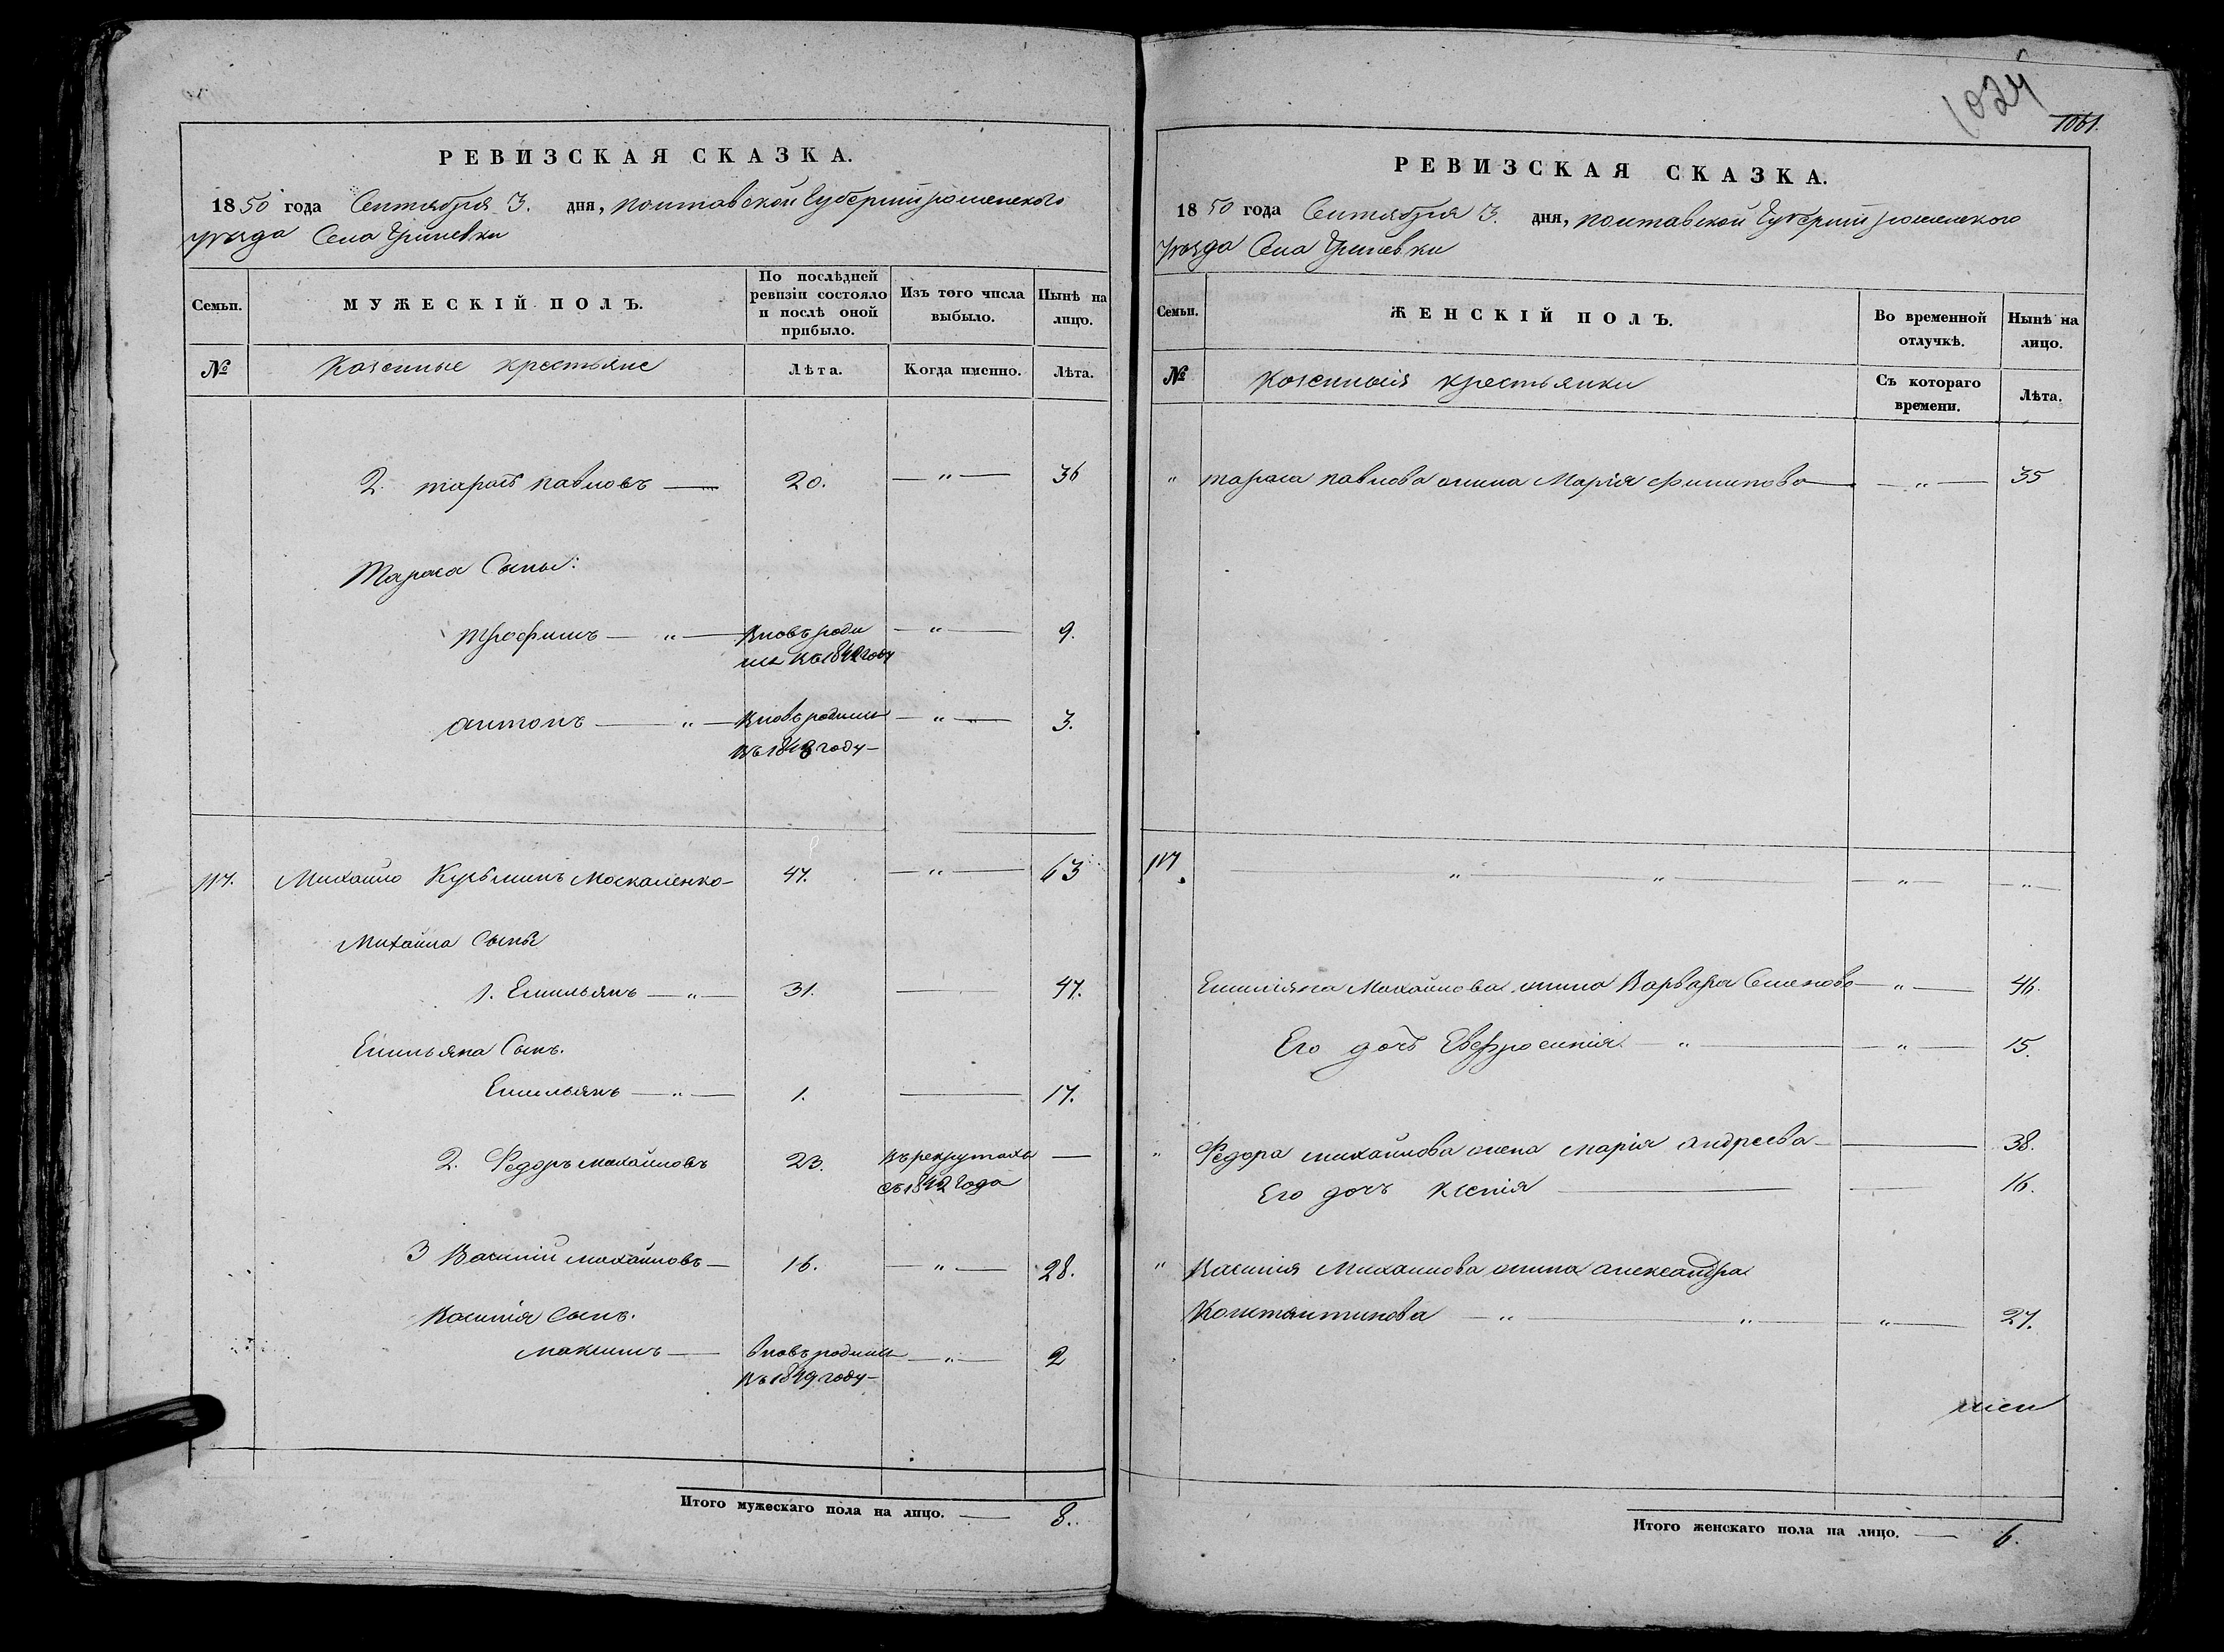 РЕВИЗСКАЯ СКАЗКА.
1850 года Сентября 3. дня, полтавской Губерніи роменского
уѣзда Села Гриневки
Семьи.
МУЖЕСКІЙ ПОЛЪ.
По послѣдней ревизіи состояло и послѣ оной прибыло.
Изъ того числа выбыло.
Нынѣ на лицо.
№
Казенные крестьяне
Лѣта.
Когда именно.
Лѣта.
2. тарасъ павловъ — 20. — " — 36
Тараса Сыны:
трофимъ — " — Вновь роди — " — 9.
въ году
антонъ — " — Вновь родился — " — 3.
въ году —
117. Михайло Кузьминъ Москаленко — 47. — " — 63
Михайла Сыны
1. Емильянъ — " — 31. — 47.
Емильяна Сынъ.
Емильянъ — " — 1. — 17.
2. Федоръ михайловъ 23. въ рекрутахъ —
съ 1842 года
3 Василій михайловъ — 16. — " — 28.
Василія сынъ.
максимъ — вновь родился — " — 2
въ 1849 году —
Итого мужескаго пола на лицо. — 8.
1024
1061.
РЕВИЗСКАЯ СКАЗКА.
1850 года Сентября 3. дня, полтавской Губерніи роменского
уѣзда Села Гриневки
Семьи.
ЖЕНСКІЙ ПОЛЪ.
Во временной отлучкѣ.
Нынѣ на лицо.
№
Казенныя крестьянки
Съ котораго времени.
Лѣта.
" тараса павлова жена Марія филипова — " — 35
117. — " — " — " — " —
Емиліяна Михайлова жена Варвара Семенова — " — 46.
Его дочь Евфросинія — " — " — 15.
" Федора михайлова жена марія андреева — 38.
Его дочь ксенія — 16.
" Василія Михайлова жена александра
Константинова — " — " — " — 27.
Итого женскаго пола на лицо. — 6.